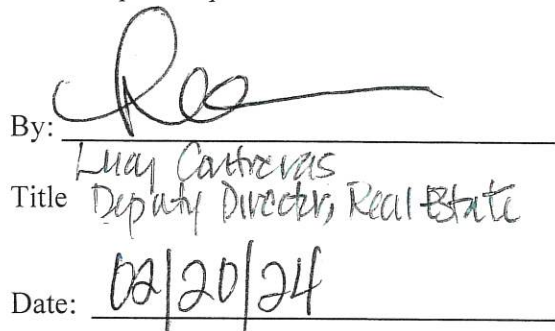 By:
Lucy Contreras
Title Deputy Director, Real Estate
Date: 02/20/24